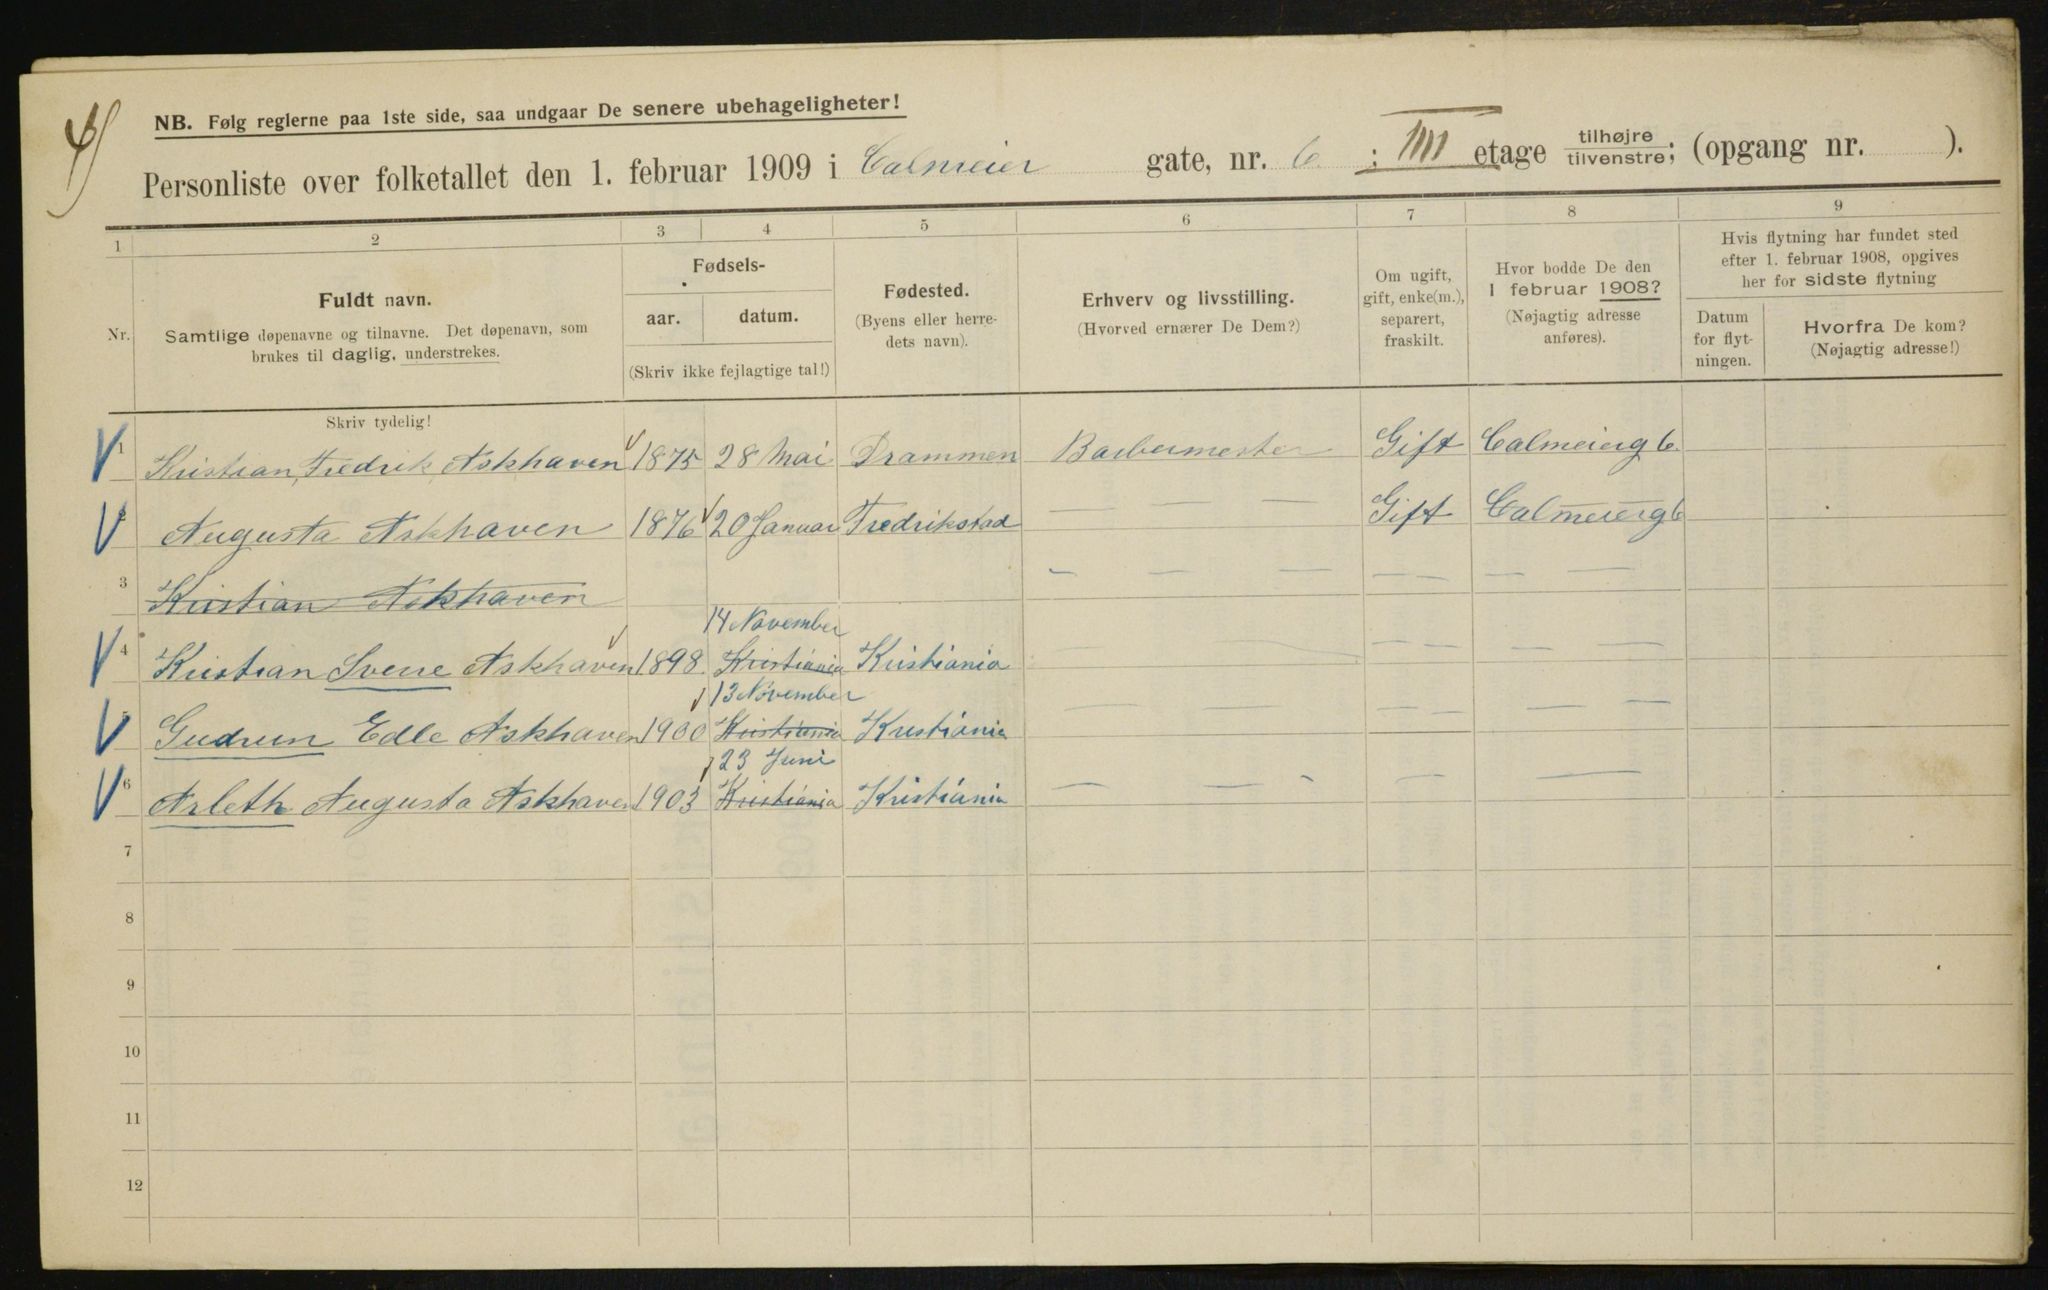 4)
NB. Følg reglerne paa 1ste side, saa undgaar De senere ubehageligheter!
Personliste over folketallet den 1. februar 1909 i Calmeier gate, nr. 6 ; IIII etage tilhøjre/tilvenstre; (opgang nr. ).
1 2 3 4 5 6 7 8 9
Nr.
Fuldt navn.
Samtlige døpenavne og tilnavne. Det døpenavn, som
brukes til daglig, understrekes.
Skriv tydelig!
Fødsels-
aar. datum.
(Skriv ikke fejlagtige tal!)
Fødested.
(Byens eller herre-
dets navn).
Erhverv og livsstilling.
(Hvorved ernærer De Dem?)
Om ugift,
gift, enke(m.),
separert,
fraskilt.
Hvor bodde De den
1 februar 1908?
(Nøjagtig adresse
anføres).
Hvis flytning har fundet sted
efter 1. februar 1908, opgives
her for sidste flytning
Datum
for flyt-
ningen.
Hvorfra De kom?
(Nøjagtig adresse!)
1 Kristian, Fredrik Askhaven 1875 28 Mai Drammen Barbermester Gift Calmeierg 6.
2 Augusta Askhaven 1876 20 Januar Fredrikstad — — Gift Calmeierg 6
3 Kristian Askhaven — — — — — — — —
14 November
4 Kristian Sverre Askhaven 1898 Kristiania Kristiania — — — —
13 November
5 Gudrun Edle Askhaven 1900 Kristiania Kristiania — — — — — — — —
23 Juni
6 Arleth Augusta Askhaven 1903 Kristiania Kristiania — — — —
7
8
9
10
11
12